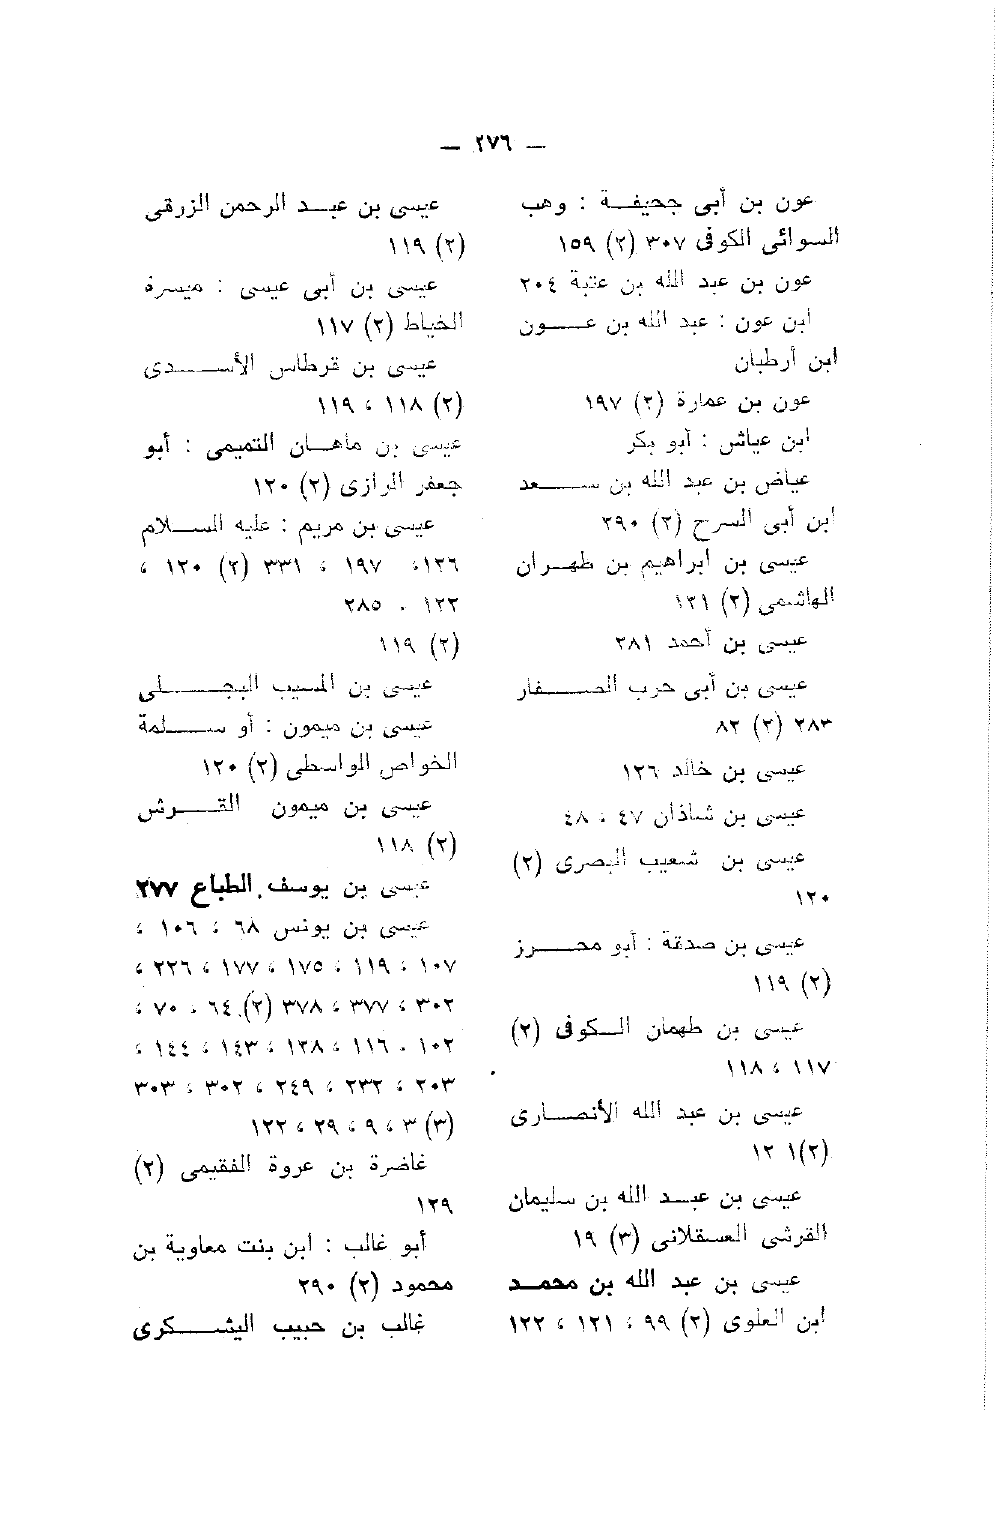 — ٢٧٦ —
عون بن أبى جحيفة : وهب
السوائى الكوفى ٣٠٧ (٢) ١٥٩
عون بن عبد الله بن عتبة ٢٠٤
ابن عون : عبد الله بن عون
ابن أرطبان
عون بن عمارة (٢) ١٩٧
ابن عياش : أبو بكر
عياض بن عبد الله بن سعد
ابن أبى السرح (٢) ٢٩٠
عيسى بن ابراهيم بن طهران
الهاشمى (٢) ١٢١
عيسى بن أحمد ٢٨١
عيسى بن أبى حرب الصفار
٢٨٣ (٢) ٨٢
عيسى بن خالد ١٢٦
عيسى بن شاذان ٤٧ ، ٤٨
عيسى بن شعيب البصرى (٢)
١٢٠
عيسى بن صدقة : أبو محرز
(٢) ١١٩
عيسى بن طهمان الكوفى (٢)
١١٧ ، ١١٨
عيسى بن عبد الله الأنصارى
(٢)١٢١
عيسى بن عبد الله بن سليمان
القرشى العسقلانى (٣) ١٩
عيسى بن عبد الله بن محمد
ابن العلوى (٢) ٩٩ ، ١٢١ ، ١٢٢
عيسى بن عبد الرحمن الزرقى
(٢) ١١٩
عيسى بن أبى عيسى : ميسرة
الخياط (٢) ١١٧
عيسى بن قرطاس الأسدى
(٢) ١١٨ ، ١١٩
عيسى بن ماهان التميمى : أبو
جعفر الرازى (٢) ١٢٠
عيسى بن مريم : عليه السلام
١٢٦، ١٩٧ ، ٣٣١ (٢) ١٢٠ ،
١٢٢ . ٢٨٥
(٢) ١١٩
عيسى بن المسيب البجلى
عيسى بن ميمون : أو سلمة
الخواص الواسطى (٢) ١٢٠
عيسى بن ميمون القرش
(٢) ١١٨
عيسى بن يوسف الطباع ٢٧٧
عيسى بن يونس ٦٨ ، ١٠٦ ،
١٠٧ ، ١١٩ ، ١٧٥ ، ١٧٧ ، ٢٢٦ ،
٣٠٢ ، ٣٧٧ ، ٣٧٨ (٢) ٦٤ ، ٧٠ ،
١٠٢ . ١١٦ ، ١٣٨ ، ١٤٣ ، ١٤٤ ،
٢٠٣ ، ٢٣٢ ، ٢٤٩ ، ٣٠٢ ، ٣٠٣
(٣) ٣ ، ٩ ، ٢٩ ، ١٢٢
غاضرة بن عروة الفقيمى (٢)
١٢٩
أبو غالب : ابن بنت معاوية بن
محمود (٢) ٢٩٠
غالب بن حبيب اليشكرى